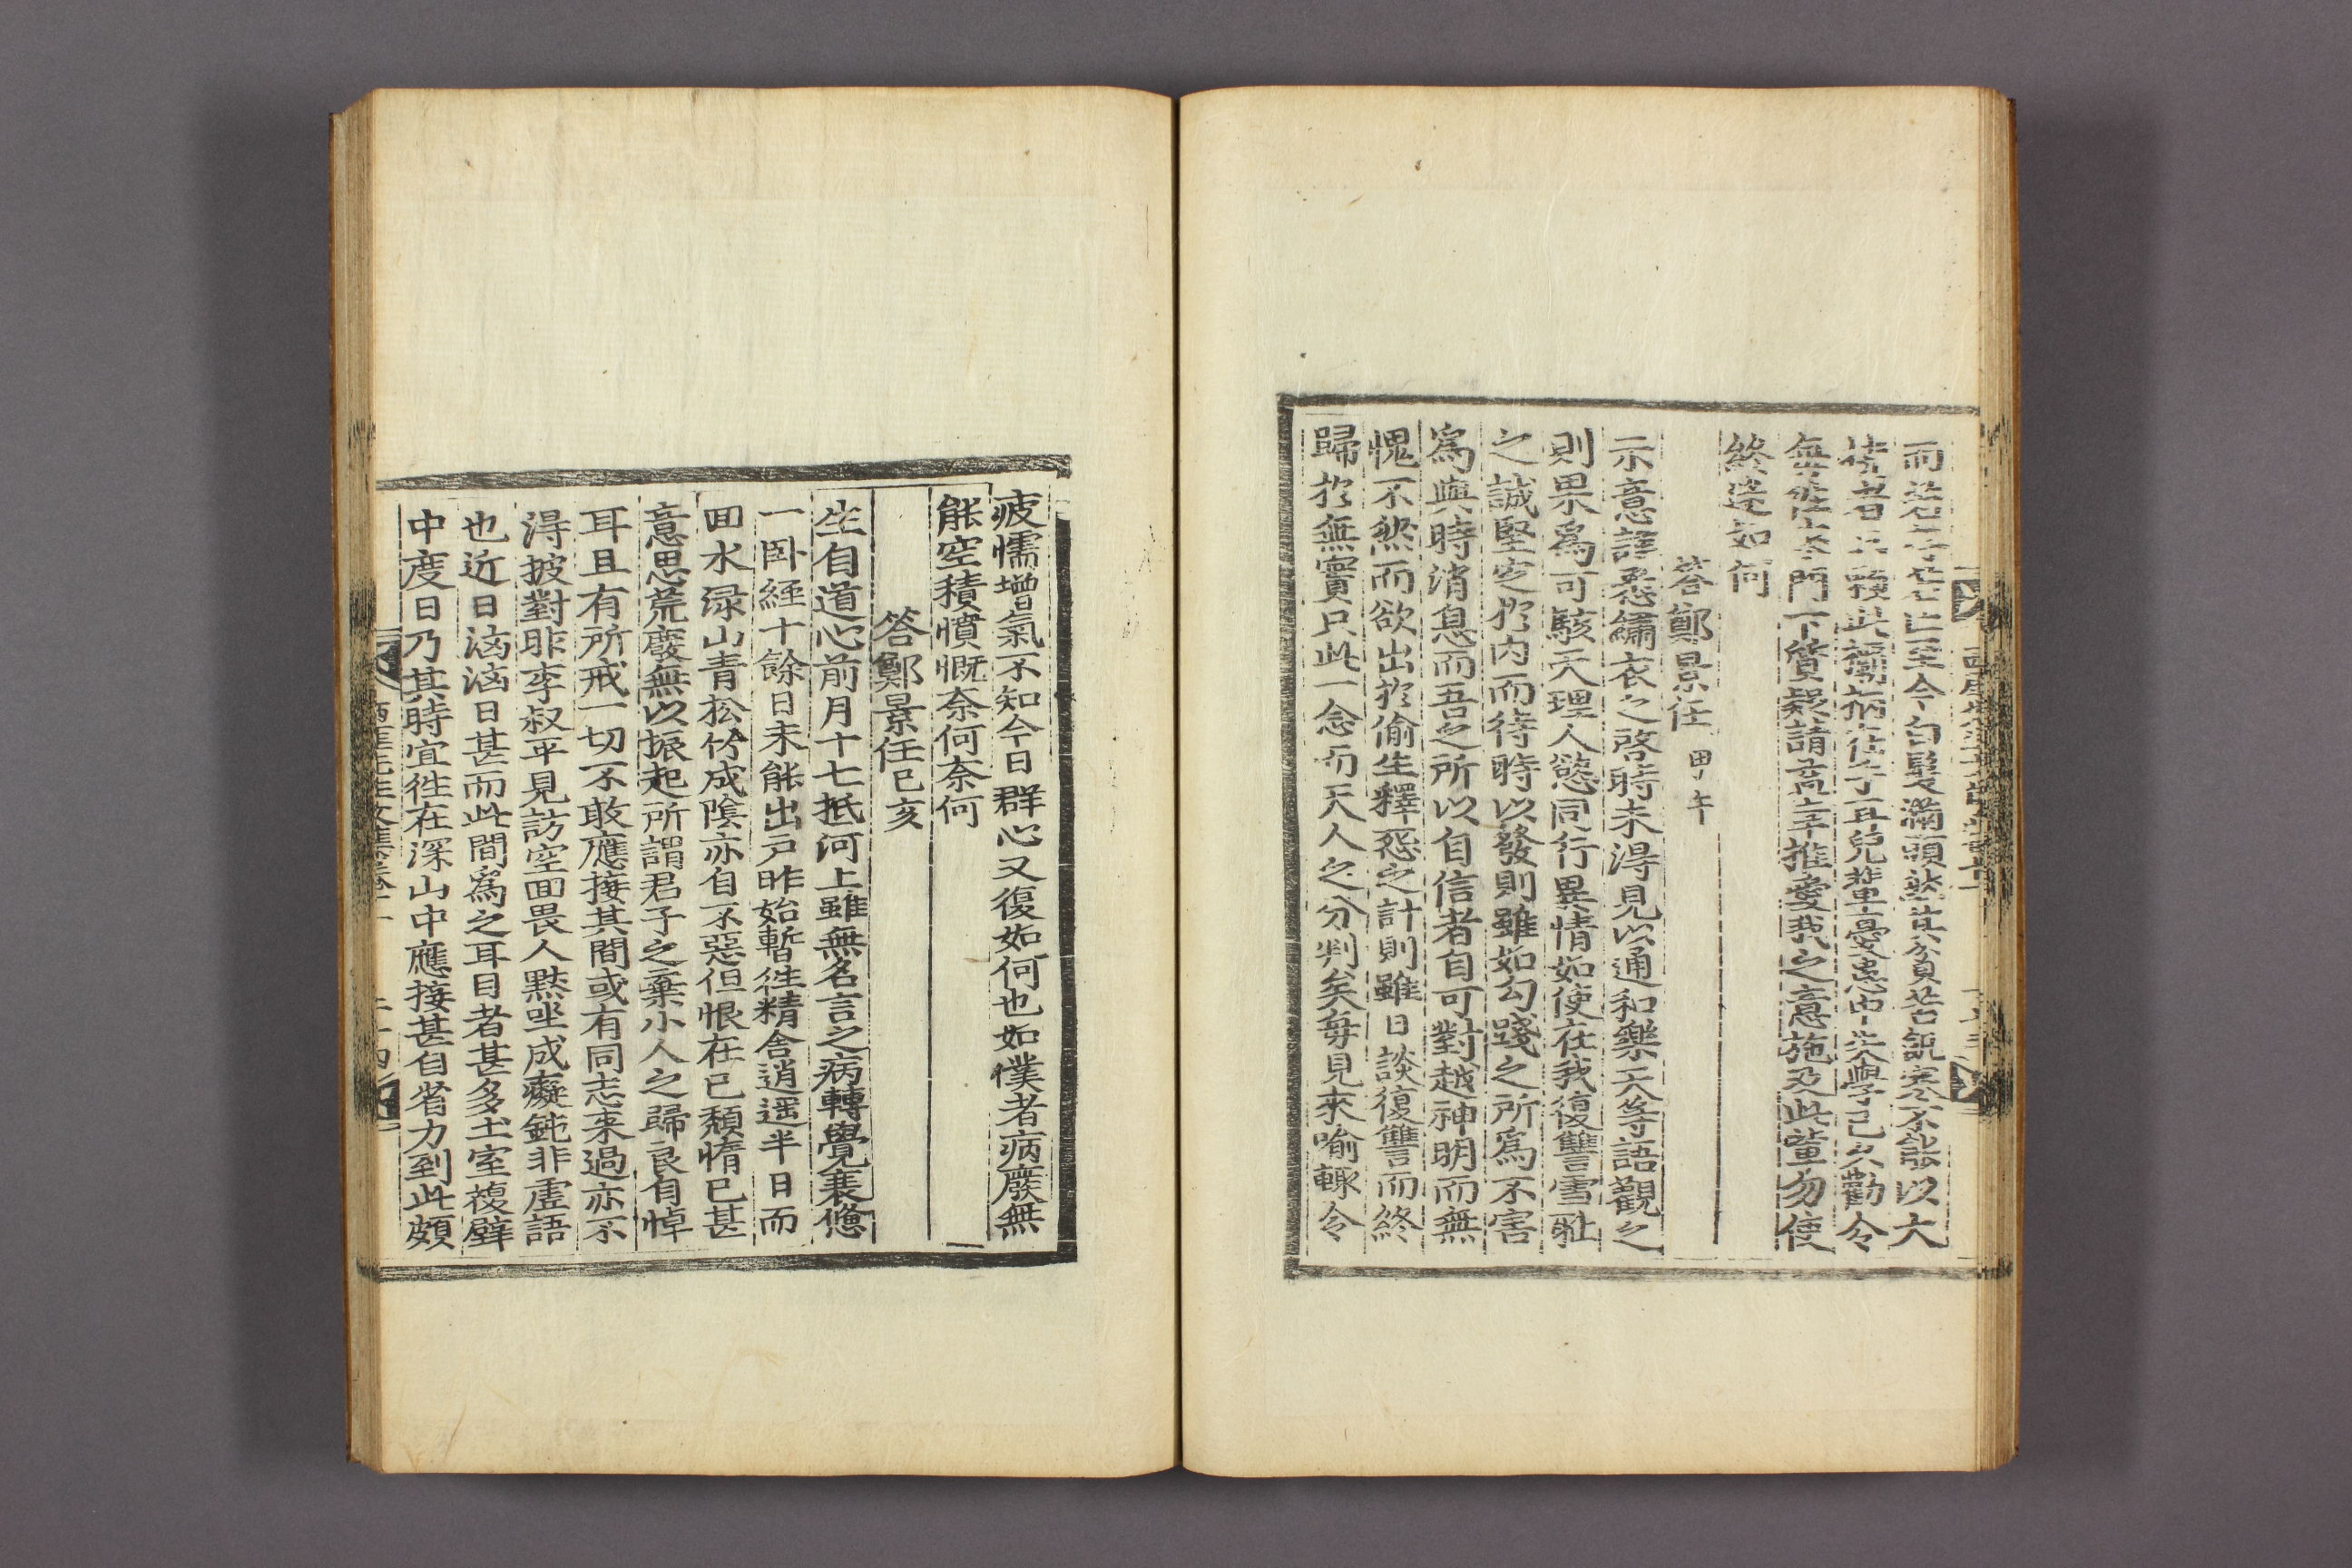 而若存若亡至今白髮滿頭然其食苦飢寒不能以大
無往來門下質疑請益幸推愛我之意施及此輩勿使
終迷如何
答鄭景任 甲午
示意謹悉繡衣之啓時未得見以通和樂天等語觀之
則果爲可駭天理人慾同行異情如使在我復讐雪耻
之誠堅定於內而待時以發則雖如勾踐之所爲不害
爲與時消息而吾之所以自信者自可對越神明而無
愧不然而欲出於偷生釋怨之計則雖日談復讐而終
歸於無實只此一念而天人之分判矣每見來喩輒令
疲懦增氣不知今日群心又復如何也如僕者病廢無
能空積憤慨奈何奈何
答鄭景任 己亥
坐自道心前月十七抵河上雖無名言之病轉覺衰憊
一臥經十餘日未能出戶昨始暫徃精舍逍遥半日而
回水淥山青松竹成陰亦自不惡但恨在已頹惰已甚
意思荒廢無以振起所謂君子之棄小人之歸良自悼
耳且有所戒一切不敢應接其間或有同志来過亦不
淂披對昨李叔平見訪空回畏人黙坐成癡鈍非虛語
也近日洶洶日甚而此間爲之耳目者甚多土室複壁
中度日乃其時宜徃在深山中應接甚自省力到此頗